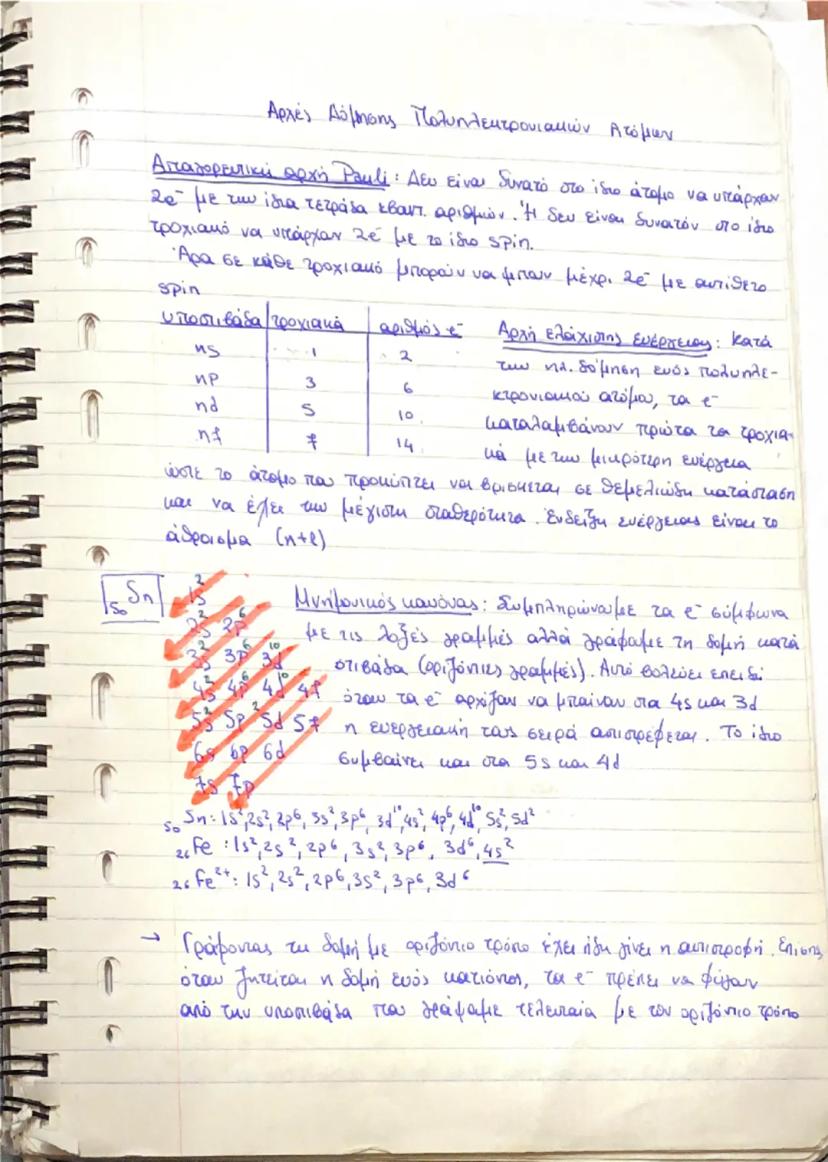 Αρχές Δόμησης Πολυηλεκτρονιακών Ατόμων
Απαγορευτική αρχή Pauli: Δεν είναι δυνατό στο ίδιο άτομο να υπάρχουν
2e⁻ με την ίδια τετράδα κβαντ. αριθμών. Ή δεν είναι δυνατόν στο ίδιο
τροχιακό να υπάρχουν 2e⁻ με το ίδιο spin.
Άρα σε κάθε τροχιακό μπορούν να μπουν μέχρι 2e⁻ με αντίθετο
spin
υποστιβάδα τροχιακά αριθμός e⁻
ns 1 2
np 3 6
nd 5 10
nf 7 14
Αρχή ελάχιστης ενέργειας: Κατά
την ηλ. δόμηση ενός πολυηλε-
κτρονιακού ατόμου, τα e⁻
καταλαμβάνουν πρώτα τα τροχια-
κά με την μικρότερη ενέργεια
ώστε το άτομο που προκύπτει να βρίσκεται σε θεμελιώδη κατάσταση
και να έχει την μέγιστη σταθερότητα. Ένδειξη ενέργειας είναι το
άθροισμα (n+l)
₅₀Sn
1s²
2s² 2p⁶
3s² 3p⁶ 3d¹⁰
4s² 4p⁶ 4d¹⁰ 4f
5s² 5p² 5d 5f
6s 6p 6d
7s 7p
Μνημονικός κανόνας: Συμπληρώνουμε τα e⁻ σύμφωνα
με τις λοξές γραμμές αλλά γράφουμε τη δομή κατά
στιβάδα (οριζόντιες γραμμές). Αυτό βολεύει επειδή
όταν τα e⁻ αρχίζουν να μπαίνουν στα 4s και 3d
η ενεργειακή τους σειρά αντιστρέφεται. Το ίδιο
συμβαίνει και στα 5s και 4d
₅₀Sn: 1s², 2s², 2p⁶, 3s², 3p⁶, 3d¹⁰, 4s², 4p⁶, 4d¹⁰, 5s², 5d²
₂₆Fe: 1s², 2s², 2p⁶, 3s², 3p⁶, 3d⁶, 4s²
₂₆Fe²⁺: 1s², 2s², 2p⁶, 3s², 3p⁶, 3d⁶
→ Γράφοντας τη δομή με οριζόντιο τρόπο έχει ήδη γίνει η αντιστροφή. Επίσης
όταν ζητείται η δομή ενός κατιόντος, τα e⁻ πρέπει να φύγουν
από την υποστιβάδα που γράψαμε τελευταία με τον οριζόντιο τρόπο